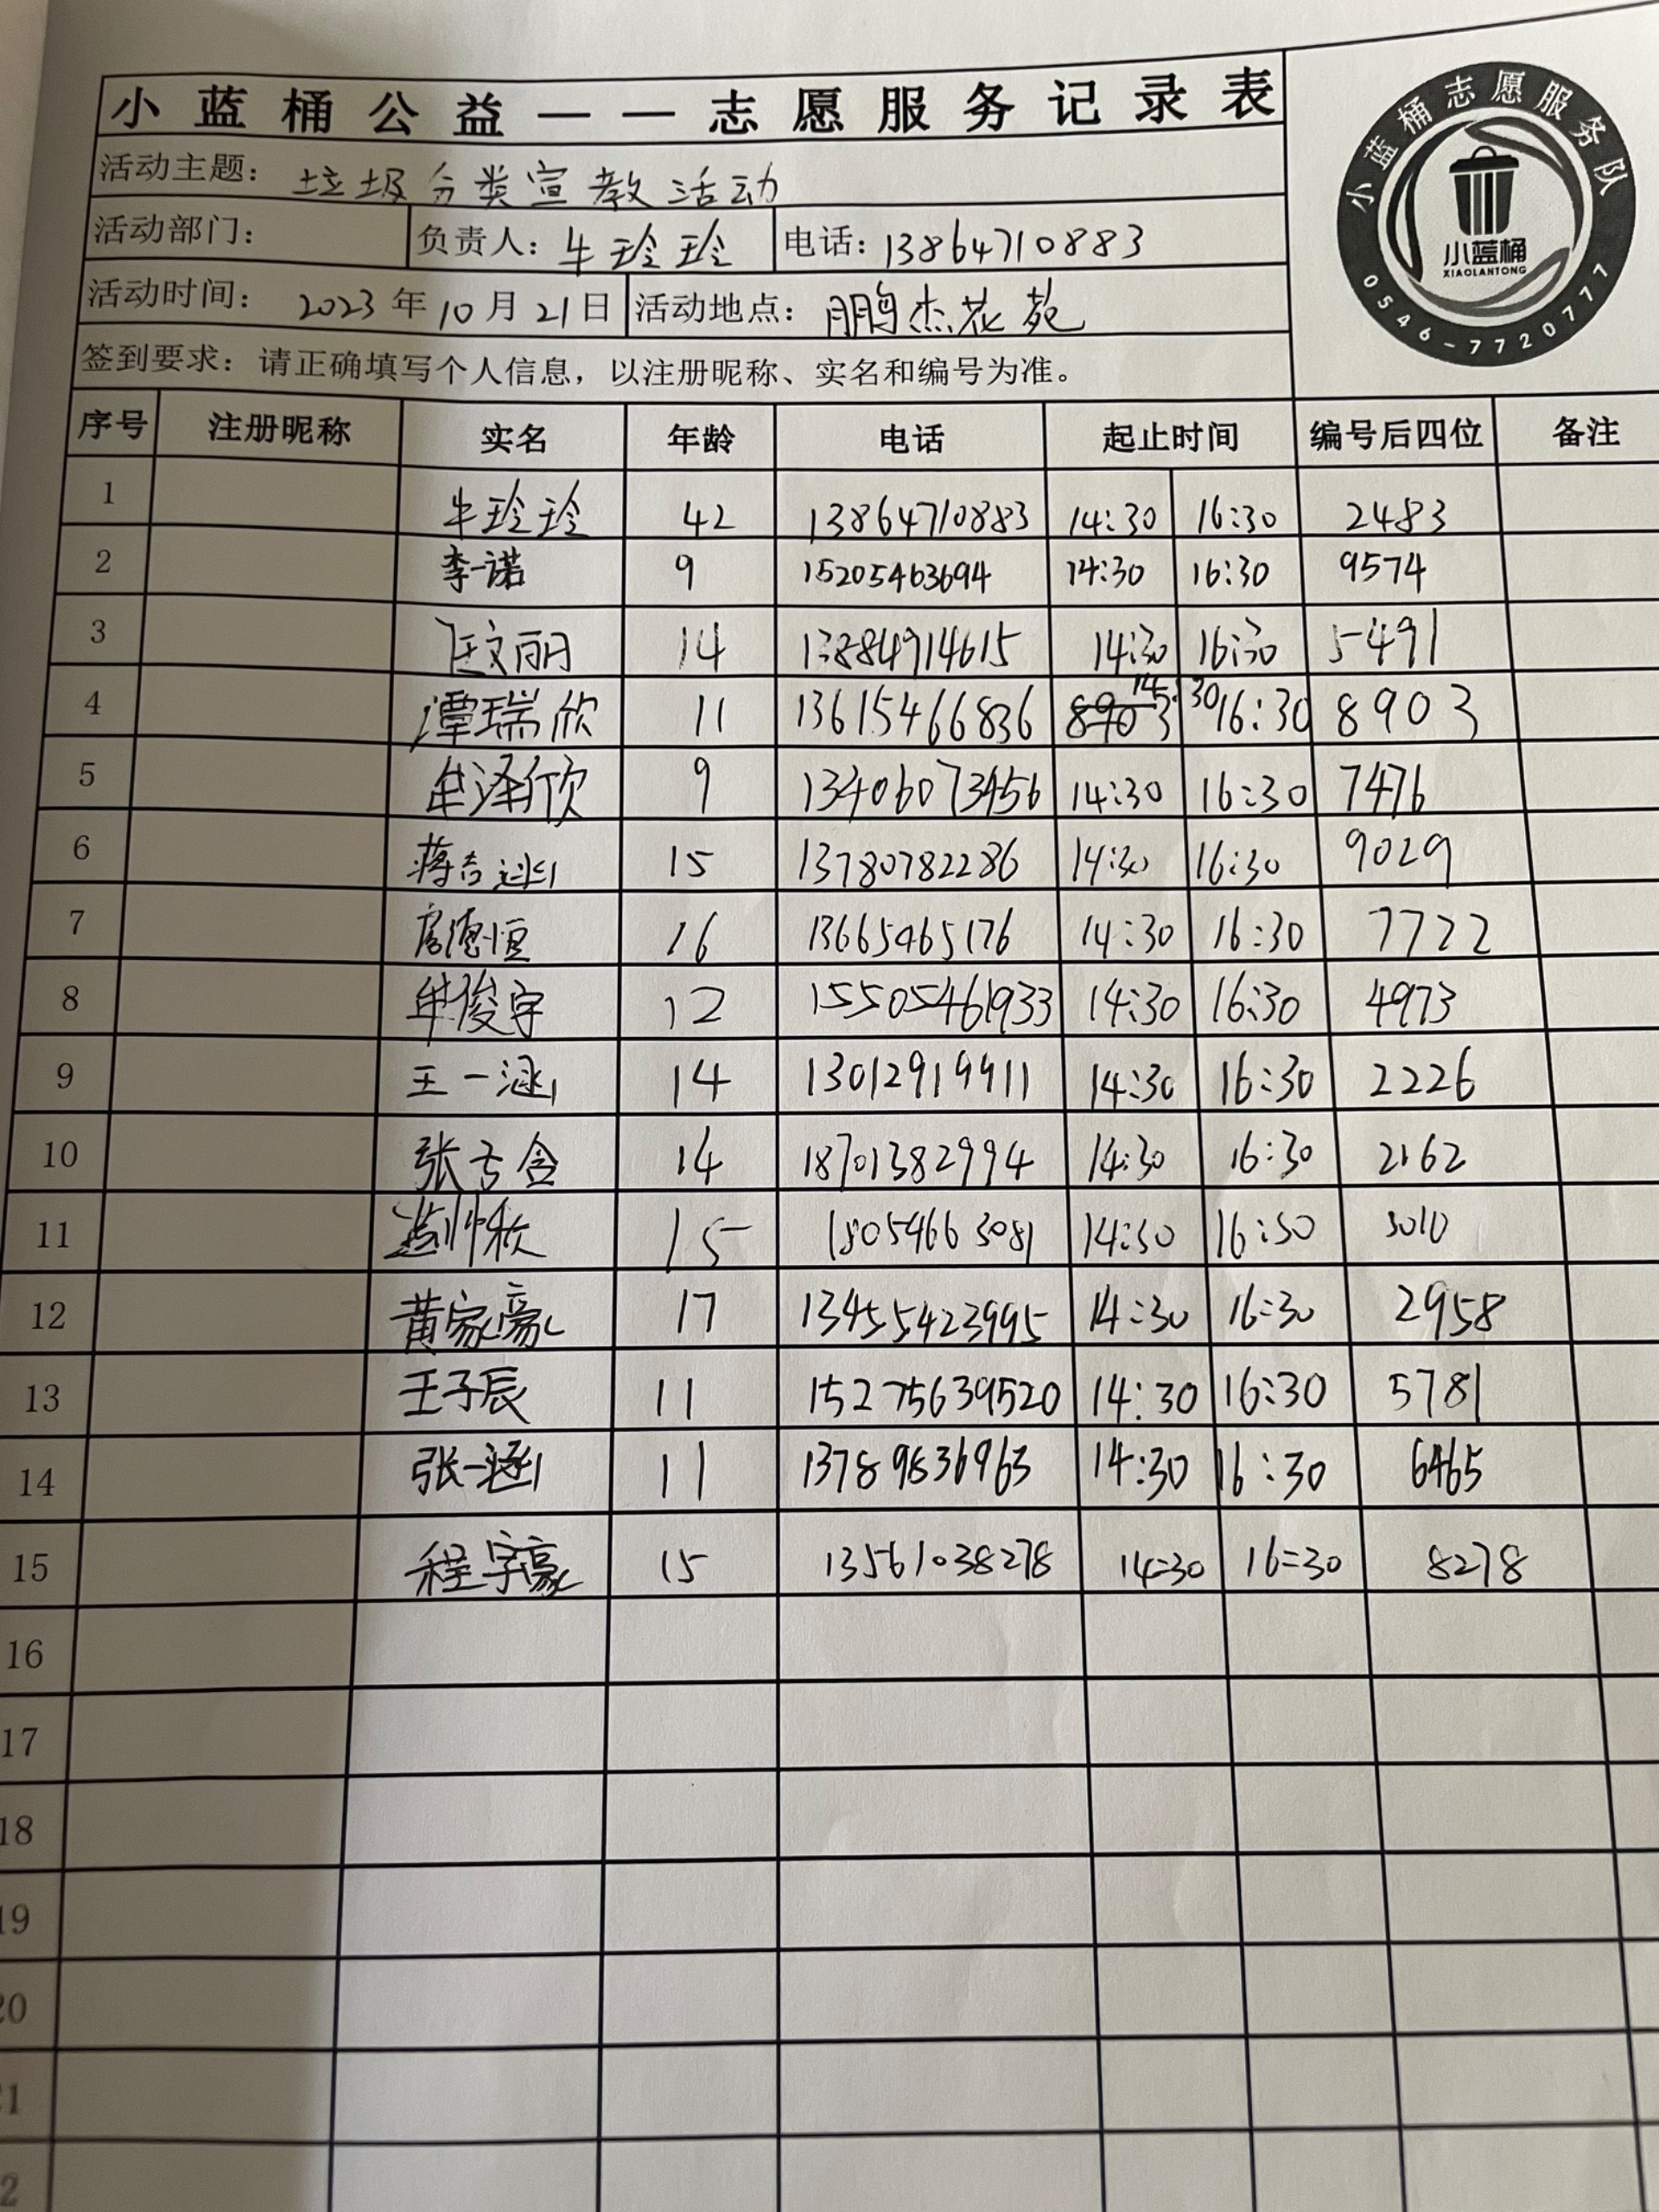 小蓝桶公益——志愿服务记录表
小蓝桶志愿服务队
小蓝桶
XIAOLANTONG
0546-7720777
活动主题: 垃圾分类宣教活动
活动部门: 负责人: 牛玲玲 电话: 13864710883
活动时间: 2023年10月21日 活动地点: 鹏杰花苑
签到要求: 请正确填写个人信息，以注册昵称、实名和编号为准。
序号 注册昵称 实名 年龄 电话 起止时间 编号后四位 备注
1 牛玲玲 42 13864710883 14:30 16:30 2483
2 李一诺 9 15205463694 14:30 16:30 9574
3 匡文丽 14 13884914615 14:30 16:30 5491
4 谭瑞欣 11 13615466836 14:30 16:30 8903
5 牟泽欣 9 13406073456 14:30 16:30 7476
6 蒋 15 13780782286 14:30 16:30 9029
7 房德恒 16 13665465176 14:30 16:30 7722
8 牟俊宇 12 15505461933 14:30 16:30 4973
9 王一涵 14 13012919911 14:30 16:30 2226
10 张 含 14 18701382994 14:30 16:30 2162
11 15 18054663081 14:30 16:30 3010
12 黄家豪 17 13455423995 14:30 16:30 2958
13 王子辰 11 15275639520 14:30 16:30 5781
14 张一涵 11 13789836963 14:30 16:30 6465
15 程宇豪 15 13561038278 14=30 16=30 8278
16
17
18
19
20